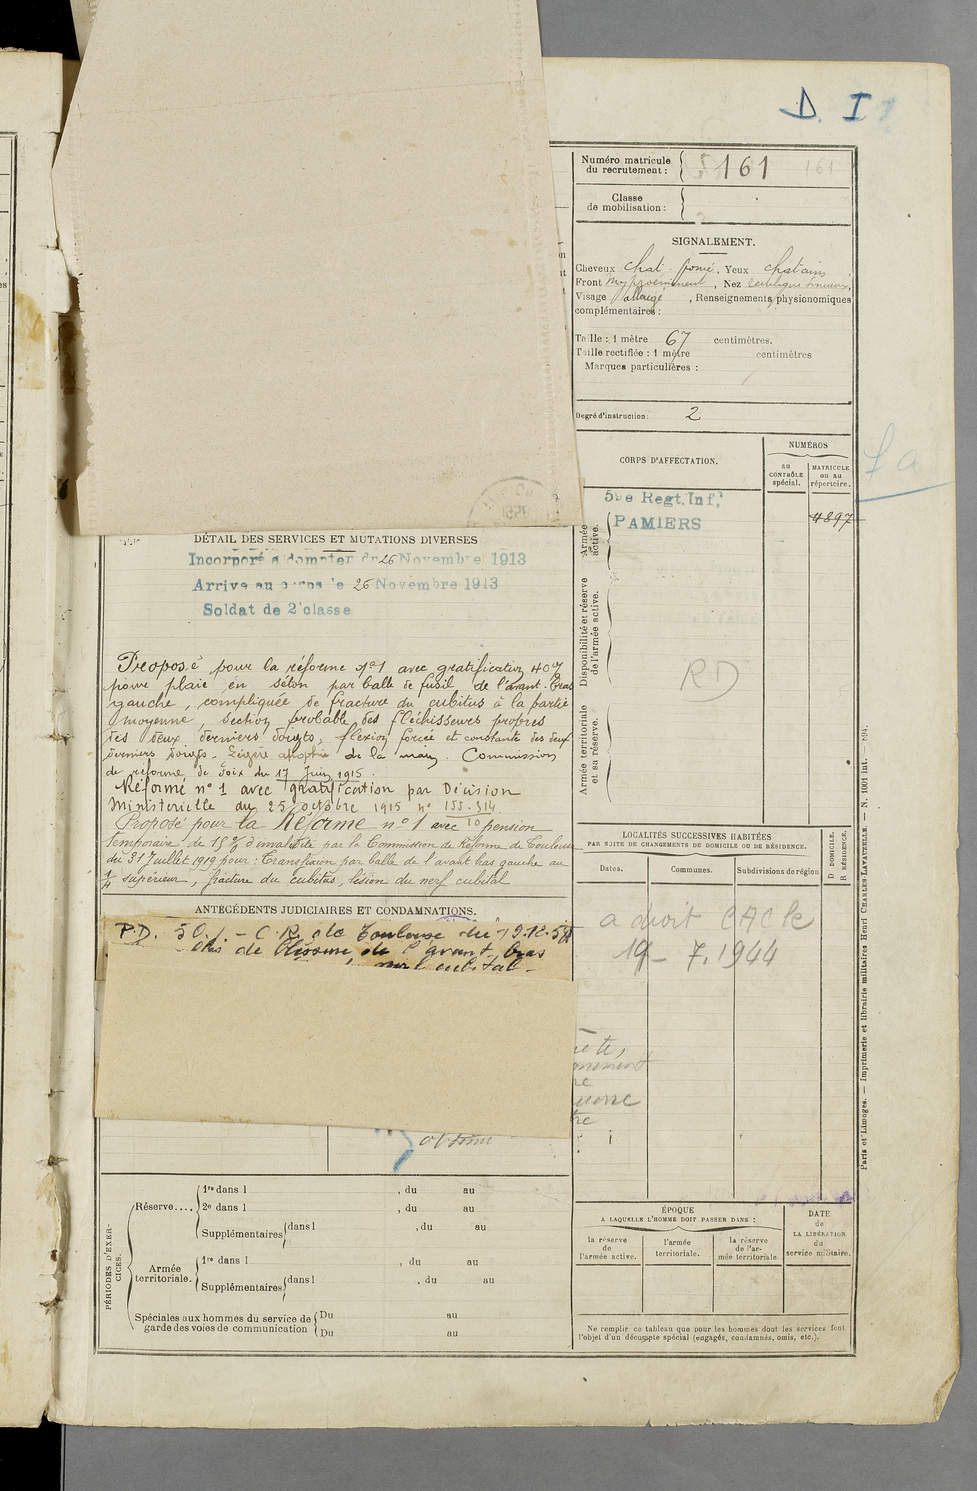 D. I
Numéro matricule
du recrutement :
161
161
Classe
de mobilisation :
SIGNALEMENT.
Cheveux chat. foncé, Yeux chatains
Front moy, Nez rectiligne sinueux,
Visage allongé, Renseignements physionomiques
complémentaires :
Taille : 1 mètre 67 centimètres.
Taille rectifiée : 1 mètre centimètres
Marques particulières :
Degré d'instruction : 2
CORPS D'AFFECTATION.
NUMÉROS
au
CONTRÔLE
spécial.
MATRICULE
ou au
répertoire.
Armée
active.
59e Regt. Inf.
PAMIERS
4897
fa
Disponibilité et réserve
de l'armée active.
RD
Armée territoriale
et sa réserve.
DÉTAIL DES SERVICES ET MUTATIONS DIVERSES
Incorporé à dompter du 26 Novembre 1913
Arrivé au corps le 26 Novembre 1913
Soldat de 2e classe
Proposé pour la réforme n°1 avec gratification 40%
pour plaie en séton par balle de fusil de l'avant-bras
gauche, compliquée de fracture du cubitus à la partie
moyenne, section probable des fléchisseurs propres
des deux derniers doigts, flexion forcée et constante des deux
derniers doigts. Légère atrophie de la main. Commission
de réforme de Foix du 17 Juin 1915.
Réformé n°1 avec gratification par Décision
Ministérielle du 25 octobre 1915 n° 155.314
Proposé pour la Réforme n°1 avec pension
temporaire de 15% d'invalidité par la Commission de Réforme de Toulouse
du 31 Juillet 1919 pour : Transfixion par balle de l'avant bras gauche au
1/4 supérieur, fracture du cubitus, lésion du nerf cubital
ANTÉCÉDENTS JUDICIAIRES ET CONDAMNATIONS.
P.D. 50 % - C.R. de Toulouse du 19.12.51
de blessure de l'avant bras
nerf cubital -
LOCALITÉS SUCCESSIVES HABITÉES
PAR SUITE DE CHANGEMENTS DE DOMICILE OU DE RÉSIDENCE.
D DOMICILE.
R RÉSIDENCE.
Dates.
Communes.
Subdivisions de région
a droit CAC le
19 - 7. 1944
PÉRIODES D'EXER-
CICES.
Réserve....
1re dans l , du au
2e dans l , du au
Supplémentaires dans l , du au
Armée
territoriale.
1re dans l , du au
Supplémentaires dans l , du au
Spéciales aux hommes du service de
garde des voies de communication
Du au
Du au
ÉPOQUE
A LAQUELLE L'HOMME DOIT PASSER DANS :
la réserve
de
l'armée active.
l'armée
territoriale.
la réserve
de l'ar-
mée territoriale.
DATE
de
LA LIBÉRATION
du
service militaire.
Ne remplir ce tableau que pour les hommes dont les services font
l'objet d'un décompte spécial (engagés, condamnés, omis, etc.).
Paris et Limoges. — Imprimerie et librairie militaires Henri CHARLES-LAVAUZELLE. — N. 1001 int.